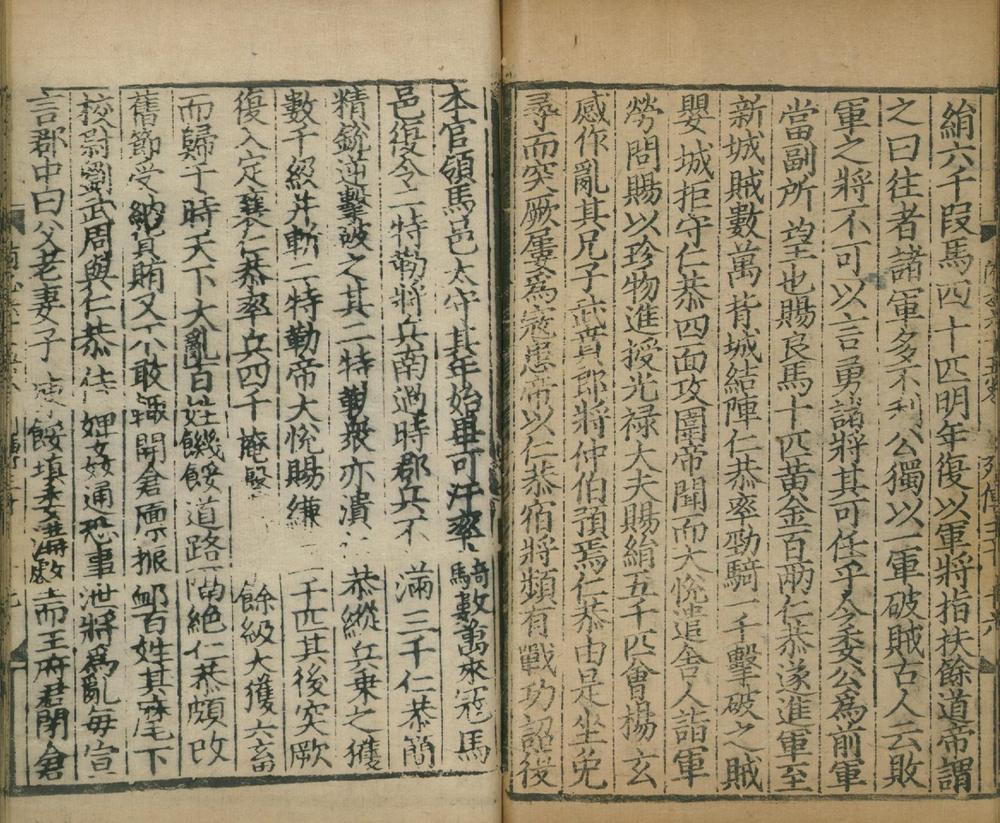 絹六千段馬四十匹明年復以軍將指扶餘道帝謂
之曰往者諸軍多不利公獨以一軍破賊古人云敗
軍之將不可以言勇諸將其可任乎今委公為前軍
當副所望也賜良馬十匹黃金百兩仁恭遂進軍至
新城賊數萬背城結陣仁恭率勁騎一千擊破之賊
嬰城拒守仁恭四面攻圍帝聞而大悅遣舍人詣軍
勞問賜以珍物進授光祿大夫賜絹五千匹會楊玄
感作亂其兄子武賁郎將仲伯預焉仁恭由是坐免
尋而突厥屢為寇患帝以仁恭宿將頻有戰功詔復
本官領馬邑太守其年始畢可汗率騎數萬來寇馬
邑復令二特勒將兵南過時郡兵不滿三千仁恭簡
精銳逆擊破之其二特勒衆亦潰仁恭縱兵乘之獲
數千級并斬二特勒帝大悅賜縑千匹其後突厥
復入定襄仁恭率兵四千掩擊餘級大獲六畜
而歸于時天下大亂百姓饑餒道路隔絕仁恭頗改
舊節受納貨賄又不敢輒開倉廩振卹百姓其麾下
校尉劉武周與仁恭侍婢姦通恐事泄將為亂每宣
言郡中曰父老妻子凍餒填委溝壑而王府君閉倉